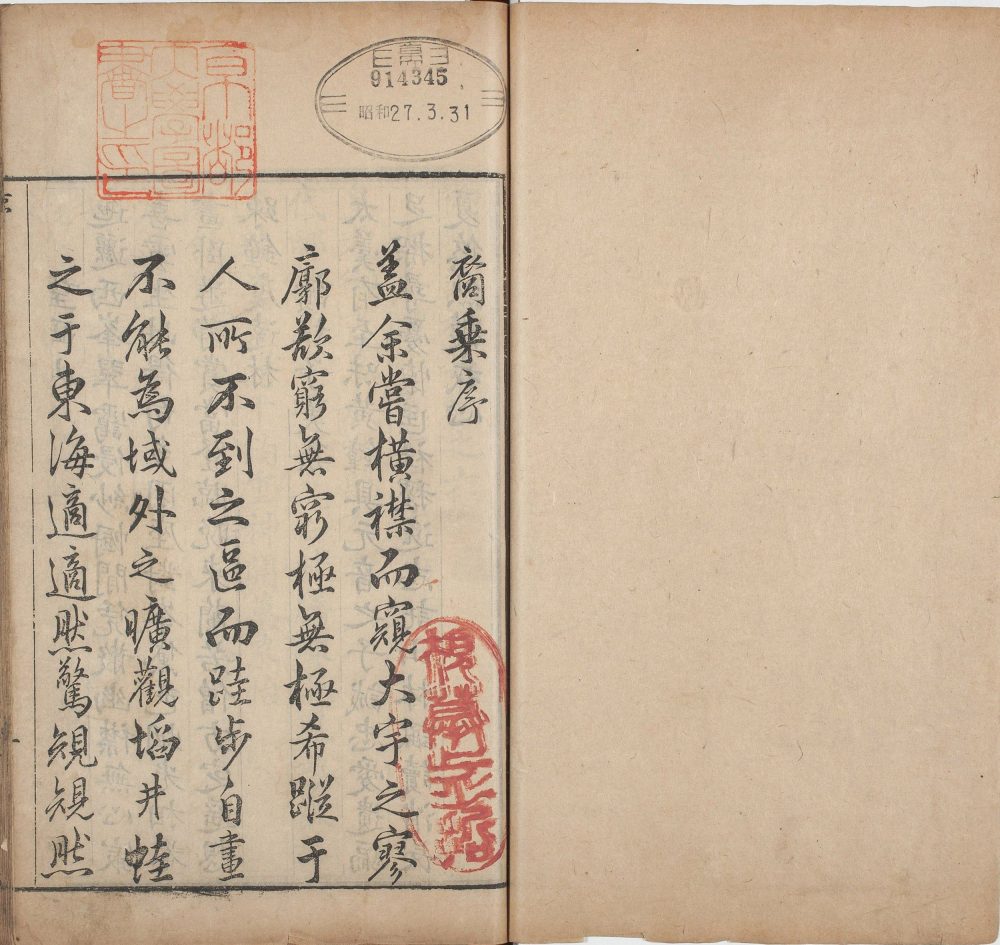 京都
大學圖
書之印
914345
昭和27.3.31
裔乘序
蓋余嘗橫襟而窺大宇之寥
廓欲窮無窮極無極希蹤于
人所不到之區而跬步自畫
不能為域外之曠觀埳井蛙
之于東海適適然驚規規然